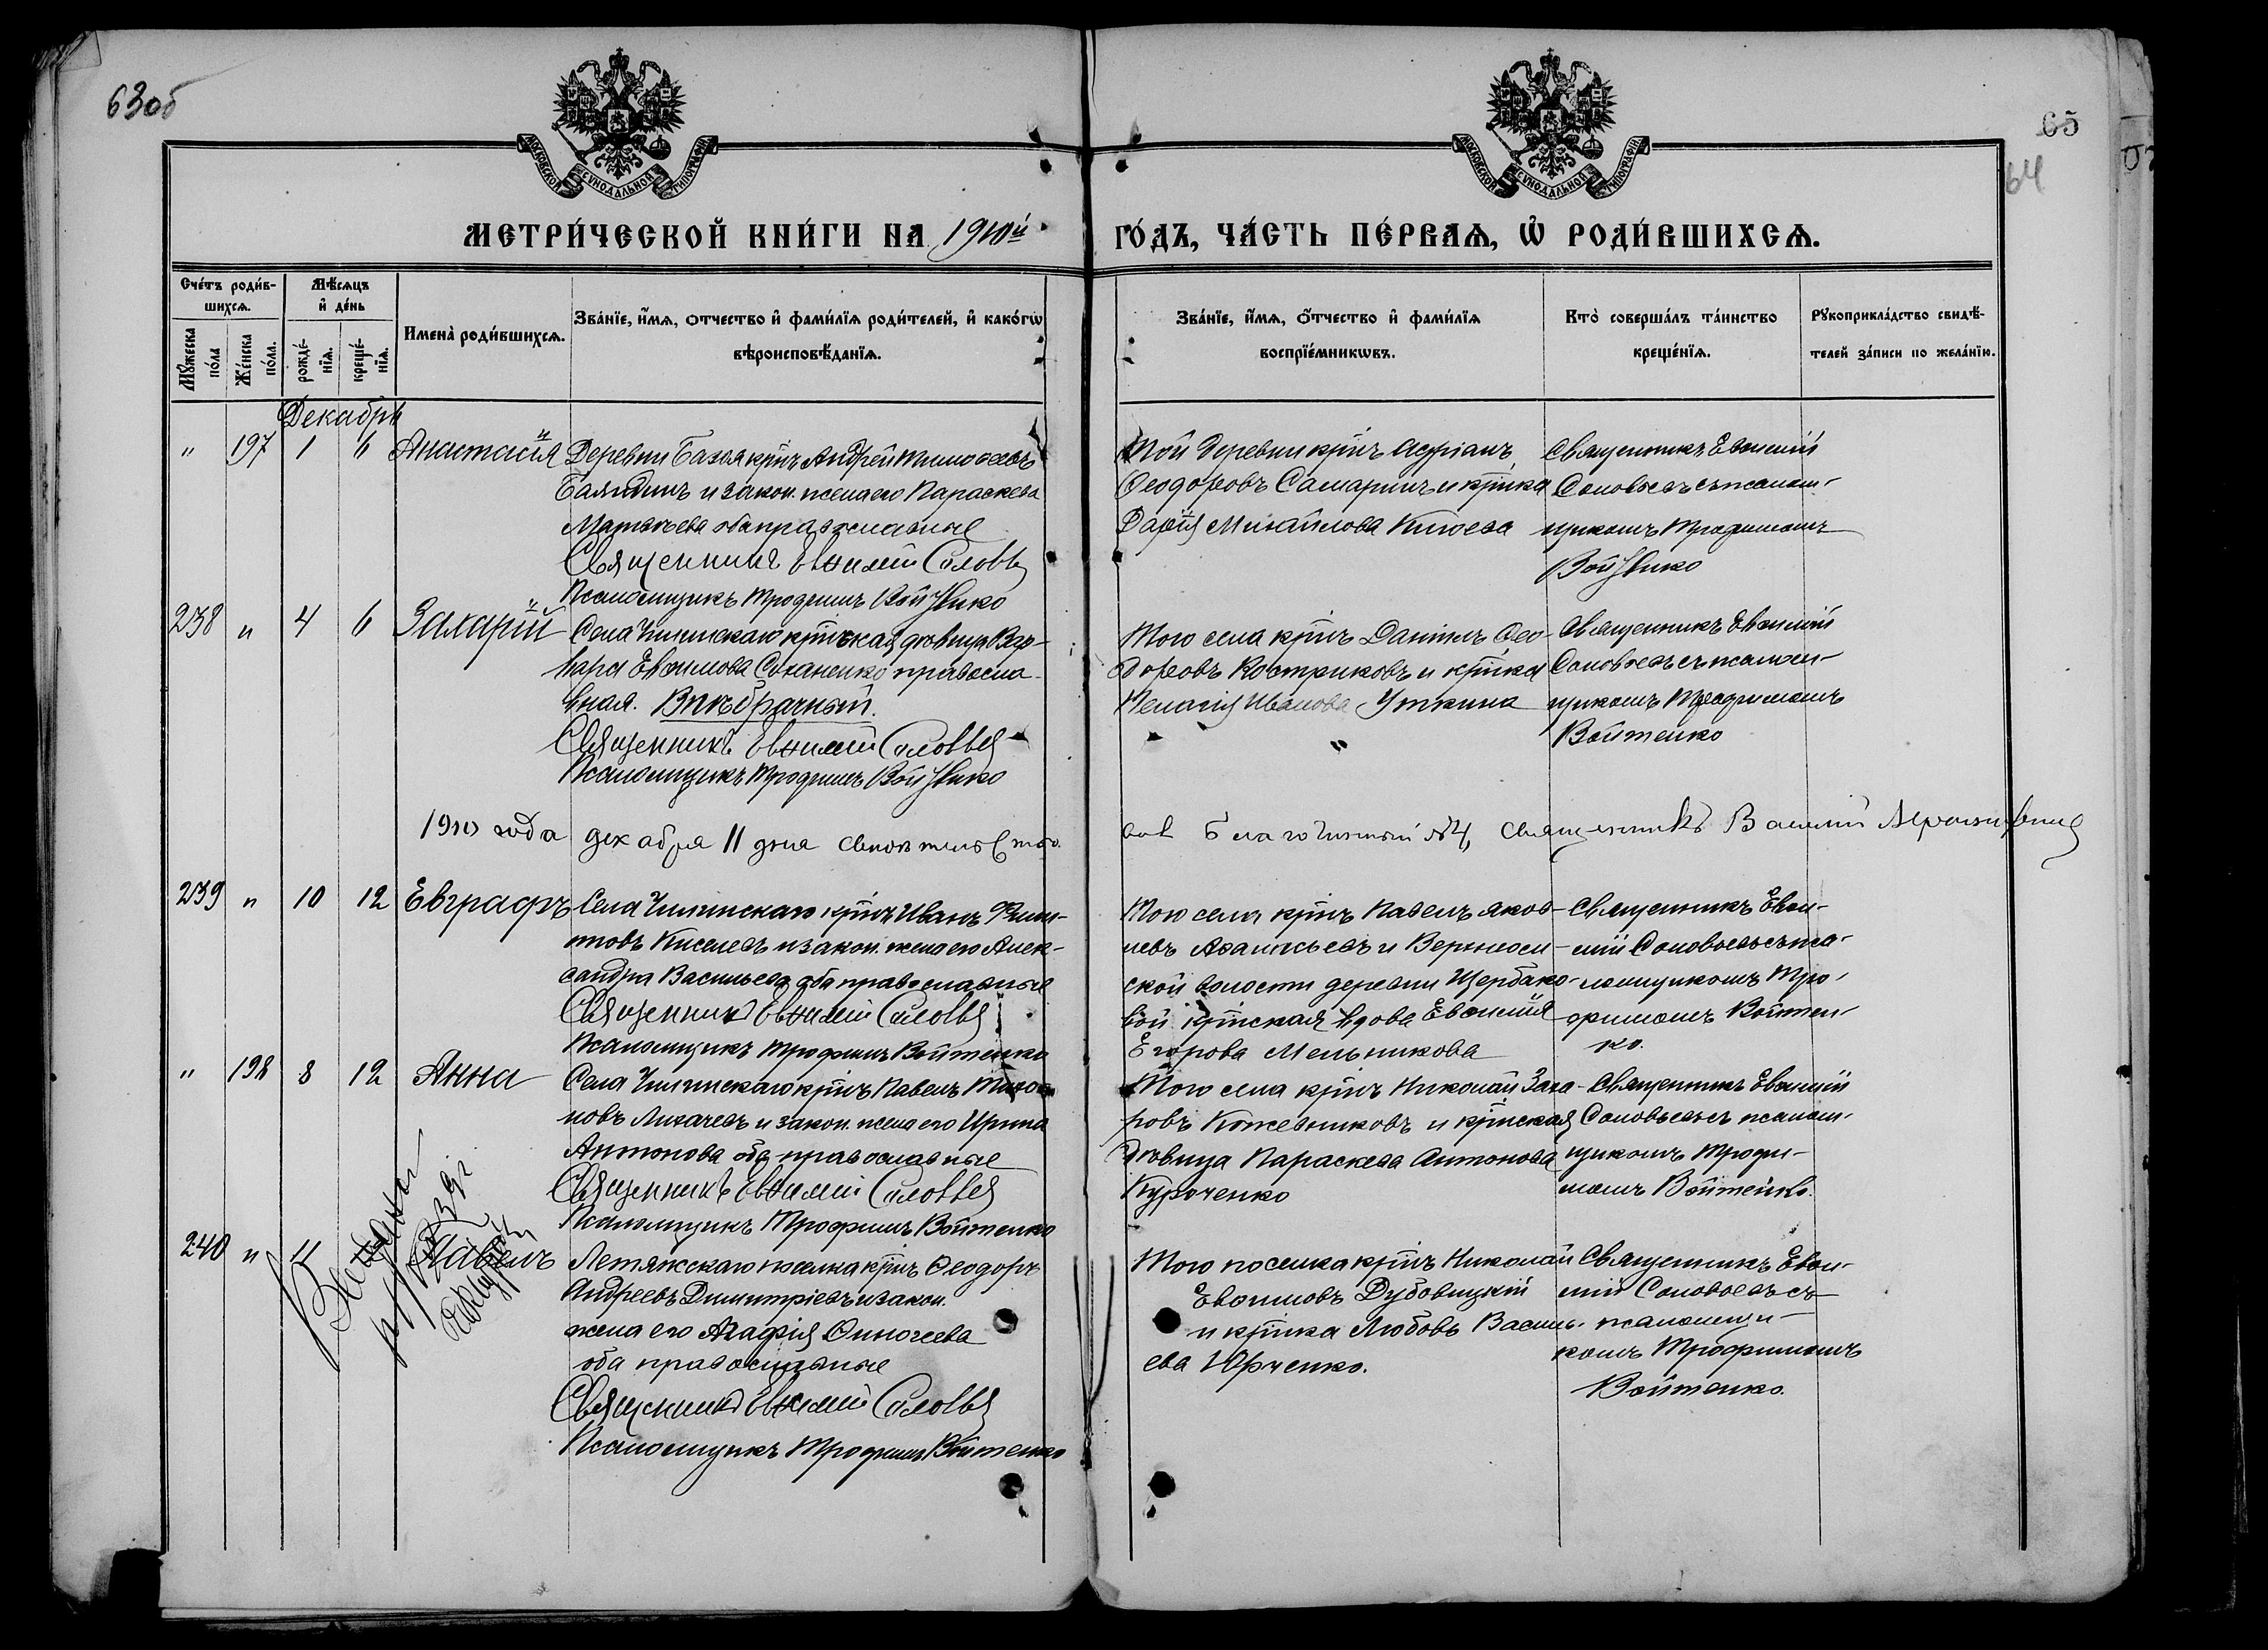 63об
65
64
МОСКОВСКОЙ СѴНОДАЛЬНОЙ ТИПОГРАФІИ
МОСКОВСКОЙ СѴНОДАЛЬНОЙ ТИПОГРАФІИ
МЕТРИ́ЧЕСКОЙ КНИ́ГИ НА 1910й
ГО́ДЪ, ЧА́СТЬ ПЕ́РВАѦ, Ѡ РОДИ́ВШИХСѦ.
Сче́тъ роди́в-
шихсѧ.
Мꙋжеска по́ла
Же́нска по́ла.
Мѣ́сѧцъ
и́ де́нь
рожде́-
нїѧ.
креще́-
нїѧ.
Имена̀ роди́вшихсѧ.
Зва́нїе, и́мѧ, о́тчество и́ фами́лїѧ роди́телей, и́ како́гѡ
вѣроисповѣ́данїѧ.
Зва́нїе, и́мѧ, о́тчество и́ фами́лїѧ
воспрїе́мникѡвъ.
Кто̀ соверша́лъ та́инство
креще́нїѧ.
Рꙋкоприкла́дство свидѣ́-
телей за́писи по жела́нїю.
Декабрь
" 197 1 6 Анастасія
Деревни Базоя кр҃інъ Андрей Тимоѳеевъ
и закон. жена его Параскева
Матвѣева оба православные
Священникъ Евѳимій Соловьев
Псаломщикъ Трофимъ Войтенко
Той деревни кр҃інъ Адріанъ
Ѳеодоровъ Самаринъ и кр҃інка
Дарія Михайлова Китоева
Священникъ Евѳимій
Соловьевъ съ псалом-
щикомъ Трофимомъ
Войтенко
238 " 4 6 Захарій
Села Чилинскаго кр҃інская дѣвица Вар-
вара Евѳимова Стханенко правосла-
вная. Внѣбрачный.
Священникъ Евѳимій Соловьев
Псаломщикъ Трофимъ Войтенко
Того села кр҃інъ Даніилъ Ѳео-
доровъ Костриковъ и кр҃інка
Пелагія Иванова Уткина
"
Священникъ Евѳимій
Соловьевъ съ псалом-
щикомъ Трофимомъ
Войтенко
1910 года декабря 11 дня свидѣтельство-
валъ Благочинный №4, священникъ Василій
239 " 10 12 Евграфъ
Села Чилинскаго кр҃інъ Иванъ Филип-
повъ Киселевъ и закон. жена его Алек-
сандра Васильева оба православные
Священникъ Евѳимій Соловьев
Псаломщикъ Трофимъ Войтенко
Того села кр҃інъ Павелъ Яков-
левъ Аѳанасьевъ и Верхнеом-
ской волости деревни Щербако-
вой кр҃інская вдова Евѳимія
Егорова Мельникова
Священникъ Евѳи-
мій Соловьевъ съ пса-
ломщикомъ Тро-
фимомъ Войтен-
ко.
" 198 8 12 Анна
Села Чилинскаго кр҃інъ Павелъ Тихо-
новъ Лихачевъ и закон. жена его Ирина
Антонова оба православные
Священникъ Евѳимій Соловьев
Псаломщикъ Трофимъ Войтенко
Того села кр҃інъ Николай Заха-
ровъ Кожевниковъ и кр҃інская
дѣвица Параскева Антонова
Курченко
Священникъ Евѳимій
Соловьевъ съ псалом-
щикомъ Трофи-
момъ Войтенко.
240 " 11 Павелъ
Летяжскаго поселка кр҃інъ Ѳеодоръ
Андреевъ Димитріевъ и закон.
жена его Агафія Финогеева
оба православные
Священникъ Евѳимій Соловьев
Псаломщикъ Трофимъ Войтенко
Того поселка кр҃інъ Николай
Евѳимовъ Дубовицкій
и кр҃інка Любовь Василь-
ева Юрченко.
Священникъ Евѳи-
мій Соловьевъ съ
псаломщи-
комъ Трофимомъ
Войтенко.